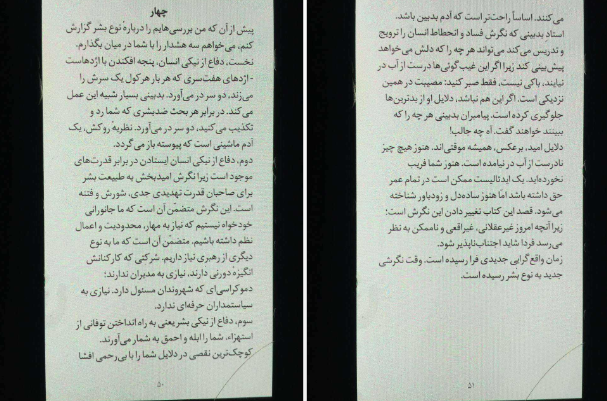 چهار
پیش از آن که من بررسی‌هایم را دربارهٔ نوع بشر گزارش
کنم، می‌خواهم سه هشدار را با شما در میان بگذارم.
نخست، دفاع از نیکی انسان، پنجه افکندن با اژدهاست
- اژدهای هفت‌سری که هر بار هرکول یک سرش را
می‌زند، دو سر در می‌آورد. بدبینی بسیار شبیه این عمل
می‌کند. در برابر هر بحث ضدبشری که شما رد و
تکذیب می‌کنید، دو سر در می‌آورد. نظریهٔ روکش، یک
آدم ماشینی است که پیوسته باز می‌گردد.
دوم، دفاع از نیکی انسان ایستادن در برابر قدرت‌های
موجود است زیرا نگرش امیدبخش به طبیعت بشر
برای صاحبان قدرت تهدیدی جدی، شورش و فتنه
است. این نگرش متضمّن آن است که ما جانورانی
خودخواه نیستیم که نیاز به مهار، محدودیت و اعمال
نظم داشته باشیم. متضمّن آن است که ما به نوع
دیگری از رهبری نیاز داریم. شرکتی که کارکنانش
انگیزهٔ دورنی دارند، نیازی به مدیران ندارند؛
دموکراسی‌ای که شهروندان مسئول دارد، نیازی به
سیاستمداران حرفه‌ای ندارد.
سوم، دفاع از نیکی بشر یعنی به راه انداختن توفانی از
استهزاء. شما را ابله و احمق به شمار می‌آورند.
کوچک‌ترین نقصی در دلایل شما را با بی‌رحمی افشا
۵۰
می‌کنند. اساساً راحت‌تر است که آدم بدبین باشد.
استاد بدبینی که نگرش فساد و انحطاط انسان را ترویج
و تدریس می‌کند می‌تواند هر چه را که دلش می‌خواهد
پیش‌بینی کند زیرا اگر این غیب‌گوئی‌ها درست از آب در
نیایند، باکی نیست. فقط صبر کنید: مصیبت در همین
نزدیکی است. اگر این هم نباشد، دلایل او از بدترین‌ها
جلوگیری کرده است. پیامبران بدبینی هر چه را که
ببینند خواهند گفت. آه چه جالب!
دلایل امید، برعکس، همیشه موقتی‌اند. هنوز هیچ چیز
نادرست از آب در نیامده است. هنوز شما فریب
نخورده‌اید. یک ایدئالیست ممکن است در تمام عمر
حق داشته باشد امّا هنوز ساده‌دل و زودباور شناخته
می‌شود. قصد این کتاب تغییر دادن این نگرش است؛
زیرا آنچه امروز غیرعقلانی، غیراقعی و ناممکن به نظر
می‌رسد فردا شاید اجتناب‌ناپذیر شود.
زمان واقع‌گرایی جدیدی فرا رسیده است. وقت نگرشی
جدید به نوع بشر رسیده است.
۵۱